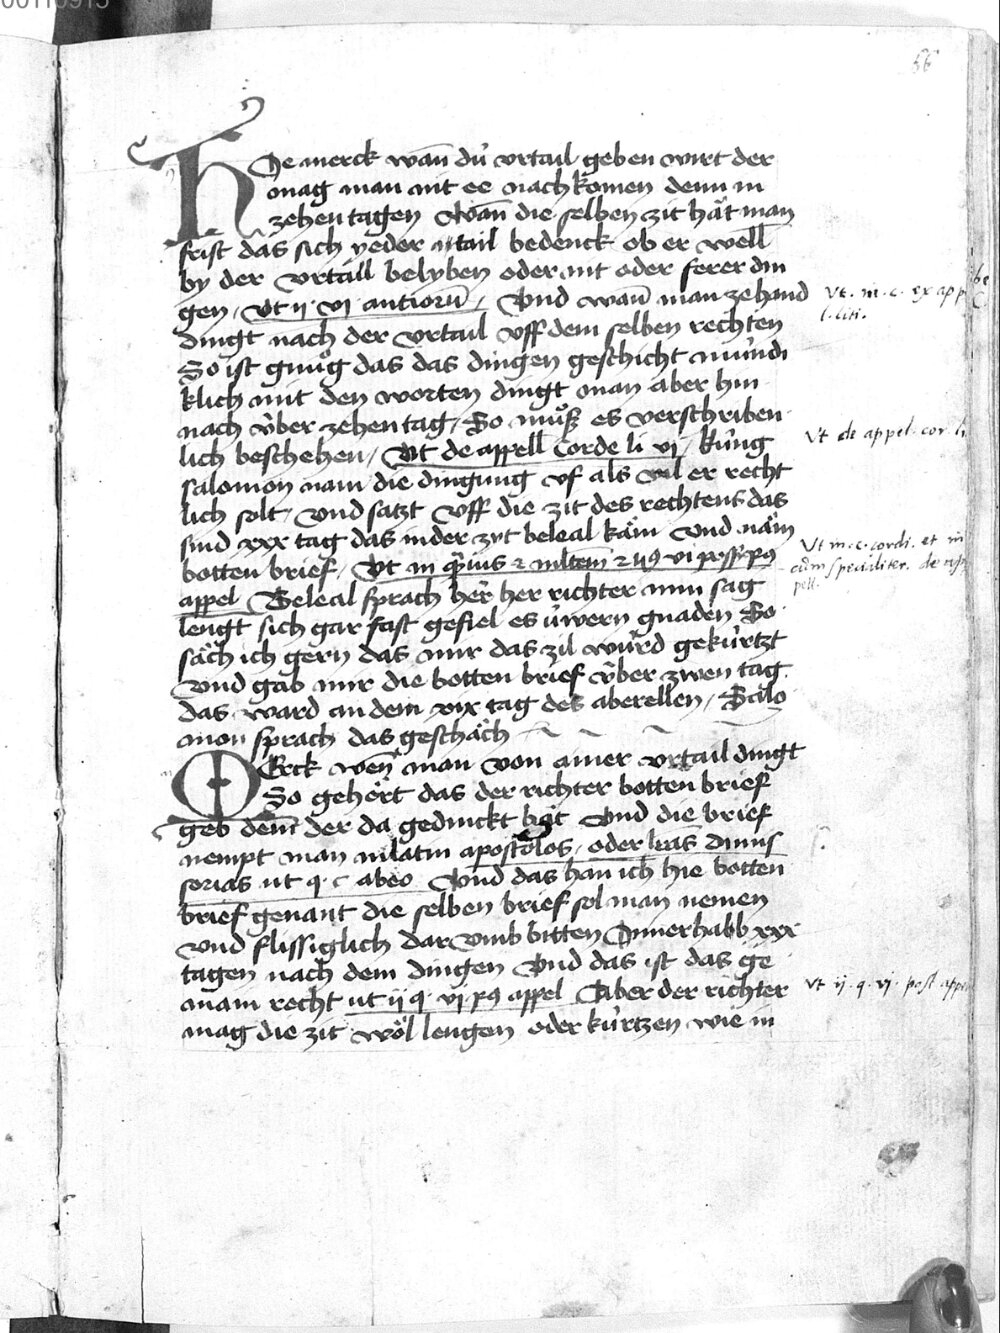 56
HIe merck wan̄ du̇ vrtail geben wirt der
mag man nit ee nach komen denn in
zehen tagen Wan̄ die selben zit hät man
frist das sich yeder tail bedenck ob er well
by der vrtaill belyben oder nit oder ferer din
gen / Vt ij · vj · antiorū / Vnd wan̄ man zehand
Vt · in · c · ex app
l · liti ·
dingt nach der vrtail vff dem selben rechten
So ist gnůg das das dingen geschicht mündt
klich mit den worten dingt man aber hin
nach über zehen tag / So můsz es verschriben
lich beschehen / Vt de appell Corde li vj / Küng
Vt de appel · cor · li
salomon nam die dingung vf als vil er recht
lich solt / vnd satzt vff die zit des rechtens das
sind xxx tag das in der zyt beleal käm vnd näm
Vt in · c · cordi · et in
botten brief / Vt in
cum specialiter · de ap
pell ·
appel Beleal sprach her her richter nun sag
lengt sich gar fast gefiel es üwern gnaden So
säch ich gern das mir das zil würd gekürtzt
vnd gäb mir die botten brief über zwen tag
das ward an dem xix tag des aberellen / Salo
mon sprach das geschäch
MErck wen̄ man von ainer vrtail dingt
So gehört das der richter botten brief
geb dem̄ der da gedinckt hät Vnd die brief
nempt man in latin apostolos / oder lr̄as dimis
sorias ut q · c abeo Vnd das han ich hie botten
brief genant die selben brief sol man nemen
vnd flissiglich dar vmb bitten Innerhabb xxx
tagen nach dem dingen Vnd das ist das ge
main recht ut ij q · vj p9 appel Aber der richter
vt ij · q · vj · post appe
mag die zit wöl lengen oder kürtzen wie in